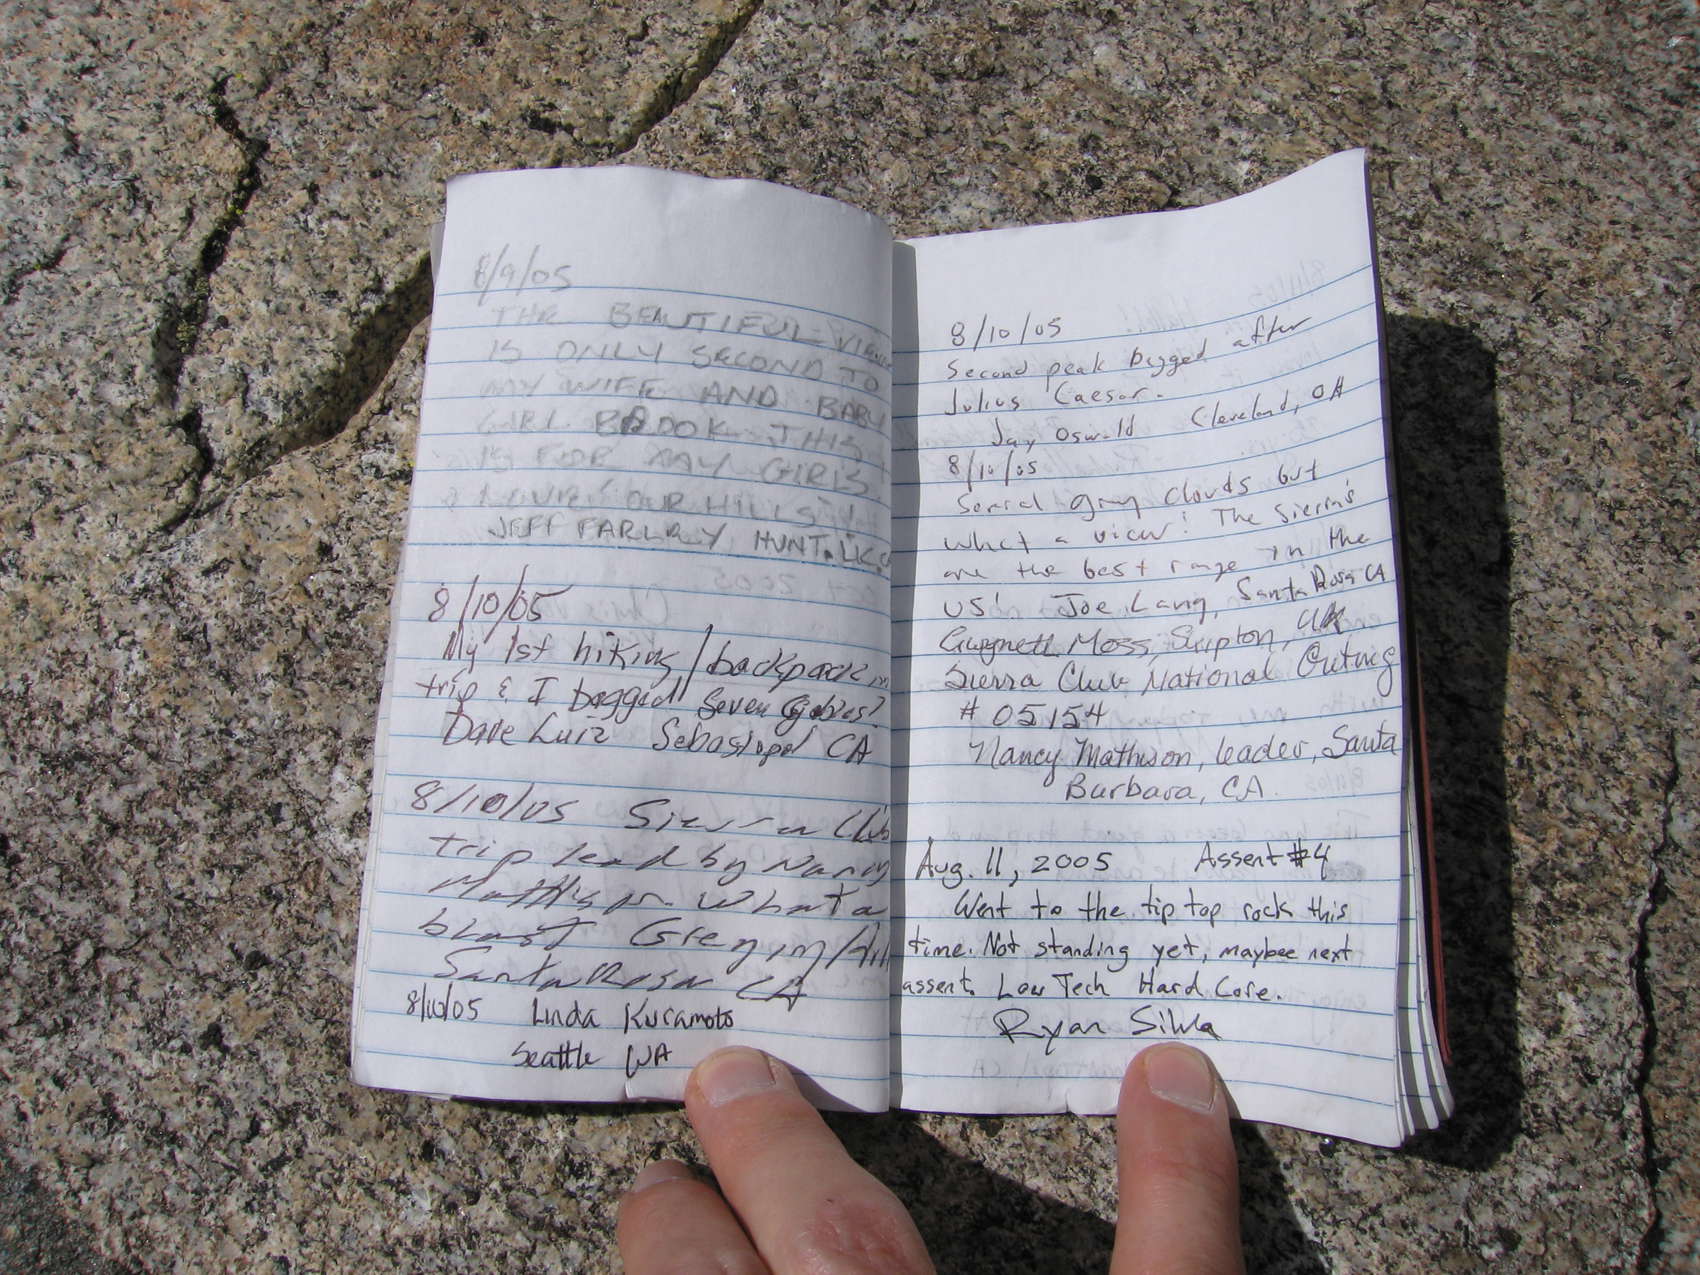 8/9/05
THE BEAUTIFUL VIEW
IS ONLY SECOND TO
MY WIFE AND BABY
GIRL BROOK THIS
IS FOR MY GIRLS.
OUR HILLS
JEFF FARLEY HUNT.
8/10/05
My 1st hiking/backpackin
trip & I bagged Seven Gables!
Dave Luiz Sebastopol CA
8/10/05 Sierra Club
trip lead by Nancy
Mathison. What a
blast
Santa Rosa CA
8/10/05 Linda Kuramoto
Seattle WA
8/10/05
Second peak bagged after
Julius Caesar.
Jay Oswald Cleveland, OH
8/10/05
gray clouds but
what a view! The Sierra's
are the best range in the
US! Joe Lang, Santa Rosa CA
Gwyneth Moss, Skipton, UK
Sierra Club National Outing
# 05154
Nancy Mathison, leader, Santa
Barbara, CA.
Aug. 11, 2005 Assent #4
Went to the tip top rock this
time. Not standing yet, maybee next
assent. Low Tech Hard Core.
Ryan Silva